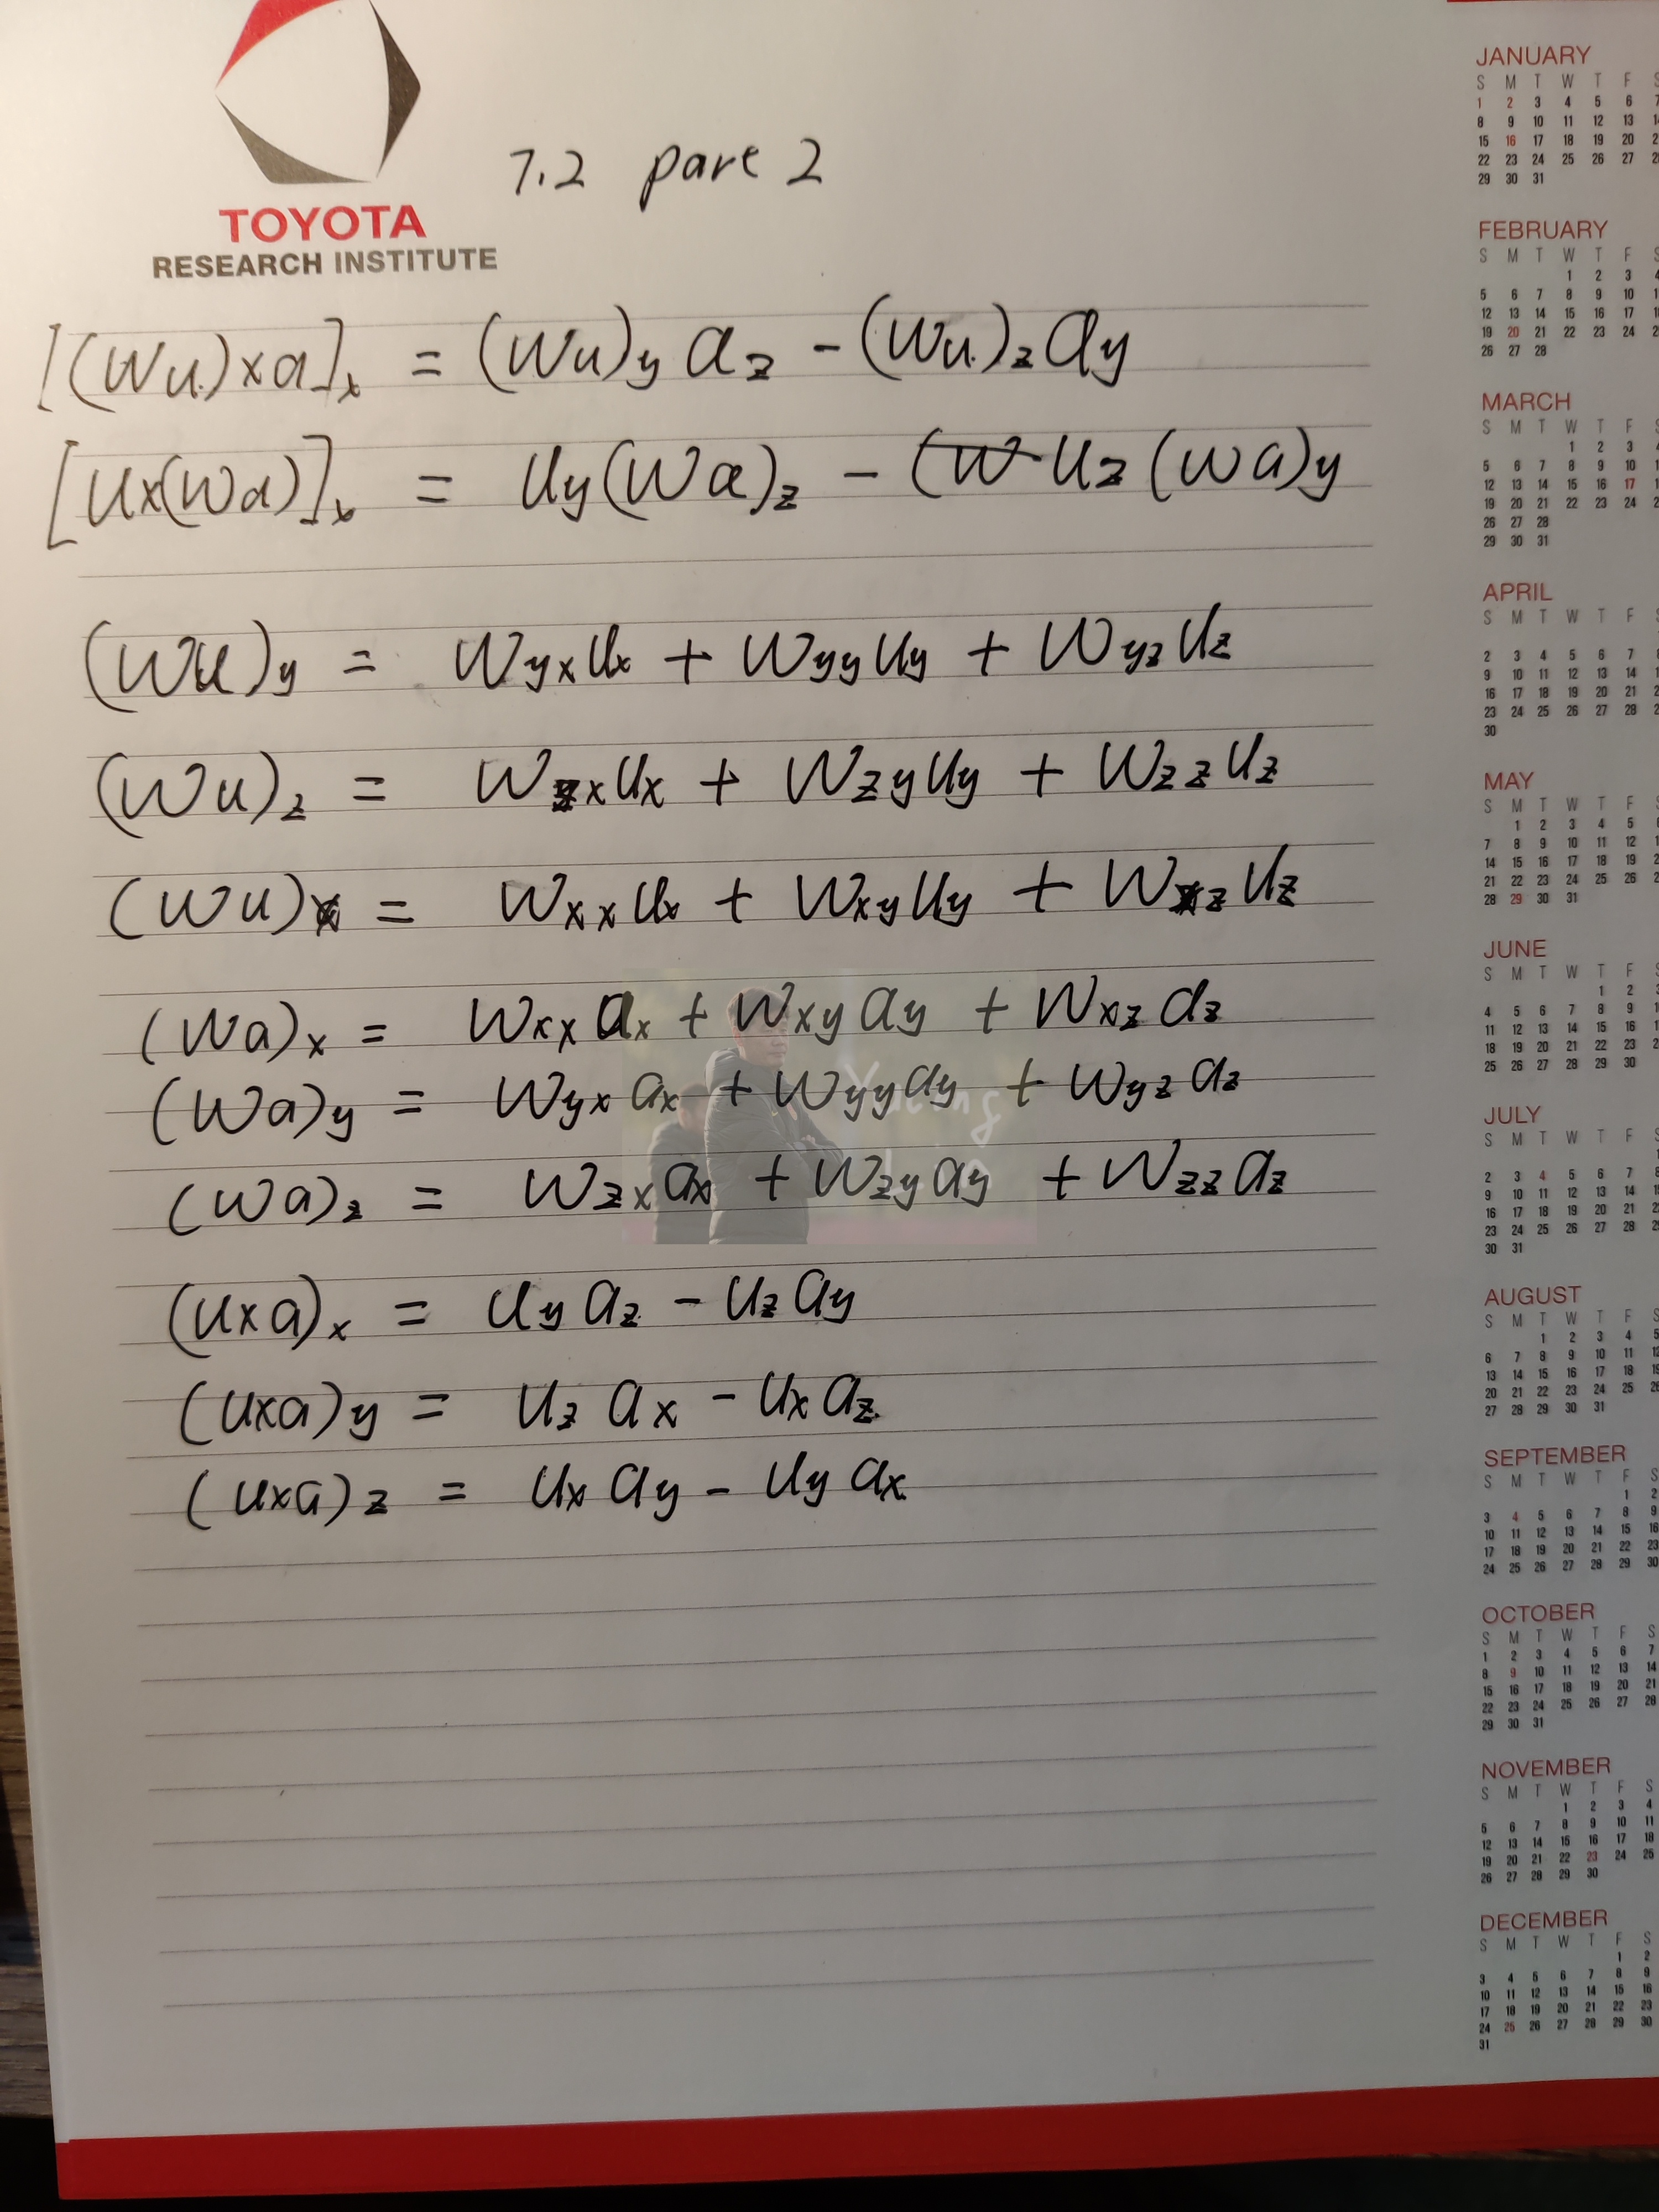 TOYOTA
RESEARCH INSTITUTE
7.2 part 2
[(Wu)×a]x = (Wu)y az - (Wu)z ay
[u×(Wa)]x = uy(Wa)z - uz (Wa)y
(Wu)y = Wyx ux + Wyy uy + Wyz uz
(Wu)z = Wzx ux + Wzy uy + Wzz uz
(Wu)x = Wxx ux + Wxy uy + Wxz uz
(Wa)x = Wxx ax + Wxy ay + Wxz az
(Wa)y = Wyx ax + Wyy ay + Wyz az
(Wa)z = Wzx ax + Wzy ay + Wzz az
(u×a)x = uy az - uz ay
(u×a)y = uz ax - ux az
(u×a)z = ux ay - uy ax
JANUARY
S M T W T F S
1 2 3 4 5 6 7
8 9 10 11 12 13
15 16 17 18 19 20
22 23 24 25 26 27
29 30 31
FEBRUARY
S M T W T F S
1 2 3 4
5 6 7 8 9 10
12 13 14 15 16 17
19 20 21 22 23 24
26 27 28
MARCH
S M T W T F S
1 2 3 4
5 6 7 8 9 10
12 13 14 15 16 17
19 20 21 22 23 24
26 27 28
29 30 31
APRIL
S M T W T F S
2 3 4 5 6 7
9 10 11 12 13 14
16 17 18 19 20 21
23 24 25 26 27 28
30
MAY
S M T W T F S
1 2 3 4 5
7 8 9 10 11 12
14 15 16 17 18 19
21 22 23 24 25 26
28 29 30 31
JUNE
S M T W T F S
1 2 3
4 5 6 7 8 9
11 12 13 14 15 16
18 19 20 21 22 23
25 26 27 28 29 30
JULY
S M T W T F S
2 3 4 5 6 7
9 10 11 12 13 14
16 17 18 19 20 21
23 24 25 26 27 28
30 31
AUGUST
S M T W T F S
1 2 3 4
6 7 8 9 10 11
13 14 15 16 17 18
20 21 22 23 24 25
27 28 29 30 31
SEPTEMBER
S M T W T F S
1 2
3 4 5 6 7 8 9
10 11 12 13 14 15 16
17 18 19 20 21 22 23
24 25 26 27 28 29 30
OCTOBER
S M T W T F S
1 2 3 4 5 6 7
8 9 10 11 12 13 14
15 16 17 18 19 20 21
22 23 24 25 26 27 28
29 30 31
NOVEMBER
S M T W T F S
1 2 3 4
5 6 7 8 9 10 11
12 13 14 15 16 17 18
19 20 21 22 23 24 25
26 27 28 29 30
DECEMBER
S M T W T F S
1 2
3 4 5 6 7 8 9
10 11 12 13 14 15 16
17 18 19 20 21 22 23
24 25 26 27 28 29 30
31